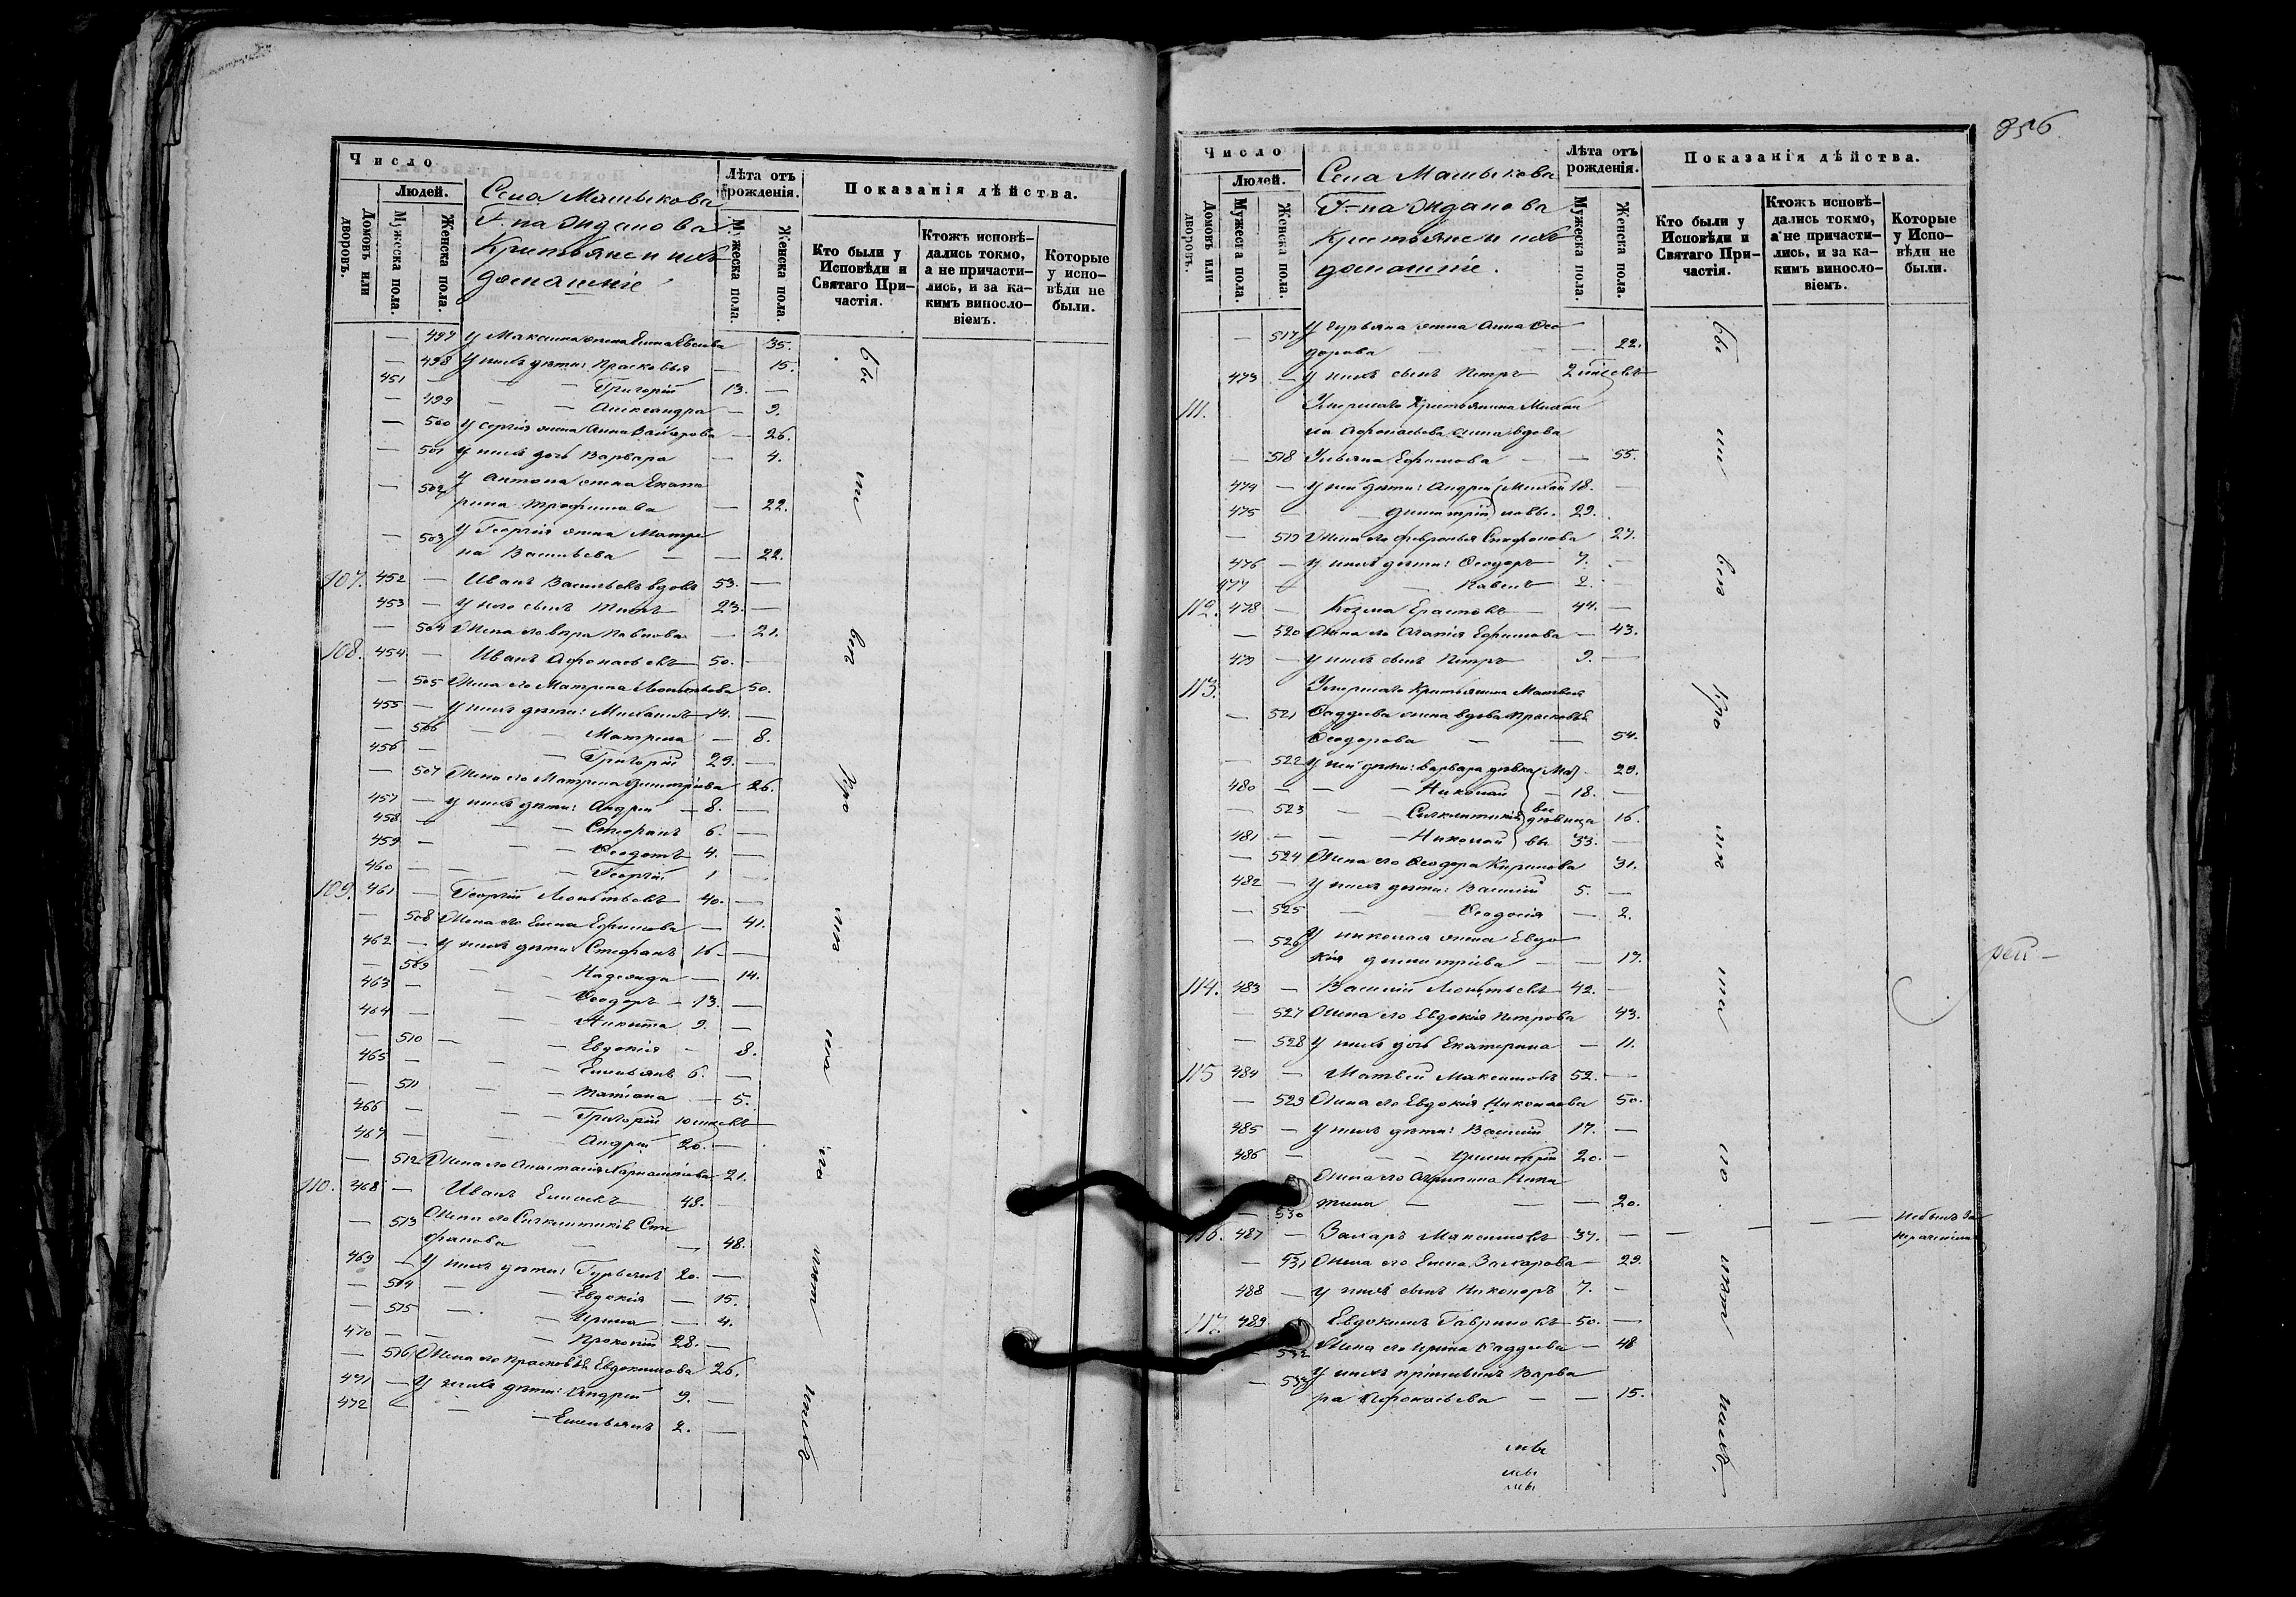 Число
Людей.
Домовъ или дворовъ.
Мужеска пола.
Женска пола.
Села Машыкова
Г-на Жданова
Крестьяне и ихъ
домашніе
Лѣта отъ рожденія.
Мужеска пола.
Женска пола.
Показанія дѣйства.
Кто были у Исповѣди и Святаго Причастія.
Ктожъ исповѣдались токмо, а не причастились, и за какимъ винословіемъ.
Которые у исповѣди не были.
— 497 У Максима жена Елена 35.
— 498 У нихъ дѣти: Прасковья — 15.
451 — Григорій 13. —
— 499 — Александра — 9.
— 500 У Сергія жена Анна — 26.
— 501 У нихъ дочь Варвара — 4.
— 502 У Антона жена Екате
рина Трофимова — 22.
— 503 У Георгія жена Матре
на Васильева — 22.
107. 452 — Иванъ Васильевъ вдовъ 53. —
453 — У него сынъ 23. —
— 504 Жена его Вѣра Павлова — 21.
108. 454 — Иванъ Афонасьевъ 50. —
— 505 Жена его Матрена Леонтьева 50.
455 — У нихъ дѣти: Михаилъ 14. —
— 506 — Матрена — 8.
456 — Григорій 29. —
— 507 Жена его Матрена Димитріева 26.
457 — У нихъ дѣти: Андрей — 8. —
458 — Стефанъ 6. —
459 — Ѳеодотъ 4. —
460 — Георгій 1 —
109. 461 — Георгій Леонтьевъ 40. —
— 508 Жена его Елена Ефимова — 41.
462 — У нихъ дѣти: Стефанъ 16 —
— 509 — Надежда — 14.
463 — Ѳеодоръ — 13. —
464 — Никита 9. —
— 510 — Евдокія — 8.
465 — Емельянъ 6. —
— 511 — Татіана — 5.
466 — Григорій 10 мѣс.
467 — Андрей 20. —
— 512 Жена его Анастасія 21.
110. 468 — Иванъ 48. —
— 513 Жена его Синклитикія Сте
фанова — 48.
469 — У нихъ дѣти: Гурьянъ 20. —
— 514 — Евдокія — 15.
— 515 — Ирина — 4.
470 — Прокопій 28. —
— 516 Жена его Прасковья Евдокимова 26.
471 — У нихъ дѣти: Андрей 9. —
472 — Емельянъ 2. —
356
Число
Людей.
Домовъ или дворовъ.
Мужеска пола.
Женска пола.
Села Машыкова
Г-на Жданова
Крестьяне и ихъ
домашніе.
Лѣта отъ рожденія.
Мужеска пола.
Женска пола.
Показанія дѣйства.
Кто были у Исповѣди и Святаго Причастія.
Ктожъ исповѣдались токмо, а не причастились, и за какимъ винословіемъ.
Которые у Исповѣди не были.
— 517 У Гурьяна жена Анна Ѳео
дорова — 22.
473 — У нихъ сынъ Петръ 2 мѣс.
111. Умершаго Крестьянина Михаи
ла Афонасьева жена вдова
— 518 Ульяна Ефимова — 55.
474 — У ней дѣти: Андрей Михаи 18. —
475 — Димитрій ловы. 29.
— 519 Жена его Февронья 27.
476 — У нихъ дѣти: Ѳеодоръ 7. —
477 — Павелъ 2. —
112. 478 — Козма 44. —
— 520 Жена его Агапія Ефимова — 43.
479 — У нихъ сынъ Петръ 9. —
113. Умершаго Крестьянина Матвея
— 521 Ѳаддеева жена вдова Прасковья
Ѳеодорова — 54.
— 522 У ней дѣти: Варвара дѣвка 29.
480 — Николай — 18. —
— 523 — Синклитикія дѣвица 16.
481 — Николай 33. —
— 524 Жена его Ѳеодора Кирилова 31.
482 — У нихъ дѣти: Василій 5. —
— 525 — Ѳеодосія — 2.
— 526 У Николая жена Евдо
кія Димитріева — 19.
114. 483 — Василій Леонтьевъ 42. —
— 527 Жена его Евдокія Петрова 43.
— 528 У нихъ дочь Екатерина — 11.
115 484 — Матвей Максимовъ 52. —
— 529 Жена его Евдокія Николаева 50.
485 — У нихъ дѣти: Василій 17. —
486 — Димитрій 20. —
Жена его Агрипина Ники
— 530 тина — 20.
116. 487 — Захаръ Максимовъ 37. — Небылъ за
нераченіемъ
— 531 Жена его Елена Захарова — 29.
488 — У нихъ сынъ Никоноръ 7. —
117. 489 Евдокимъ Гавриловъ 50. —
— 532 Жена его Ирина Ѳаддеева — 48
— 533 У нихъ пріемышъ Варва
ра Афонасьева — 15.